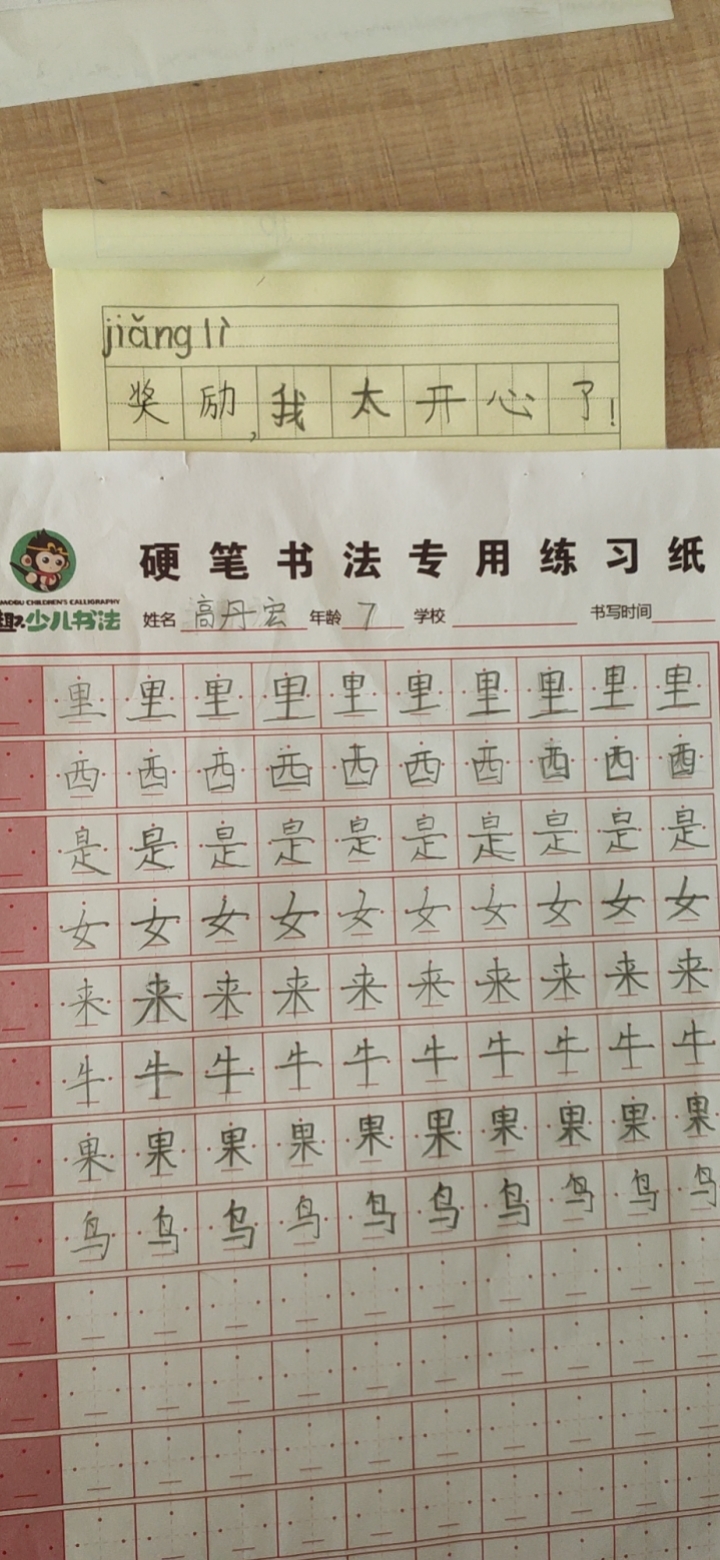 jiǎng lì
奖励,我太开心了!
硬笔书法专用练习纸
CHILDREN'S CALLIGRAPHY
趣少儿书法
姓名 高丹宏 年龄 7 学校 书写时间
里里里里里里里里里里
西西西西西西西西西西
是是是是是是是是是是
女女女女女女女女女女
来来来来来来来来来来
牛牛牛牛牛牛牛牛牛牛
果果果果果果果果果果
鸟鸟鸟鸟鸟鸟鸟鸟鸟鸟